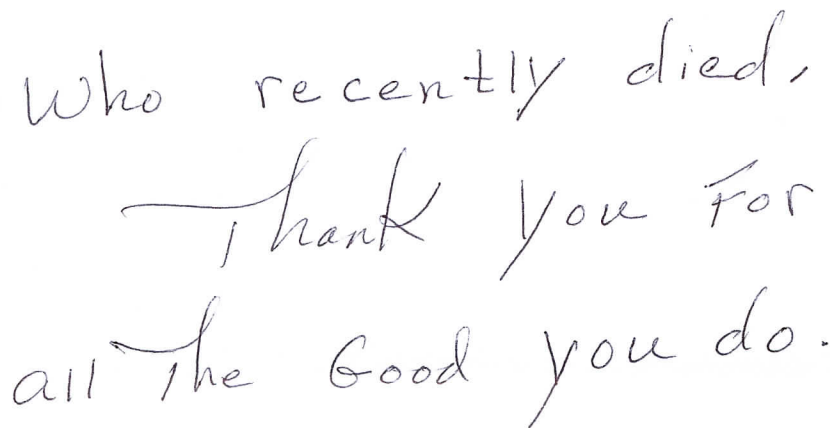 Who recently died,
Thank you For
all The Good you do.